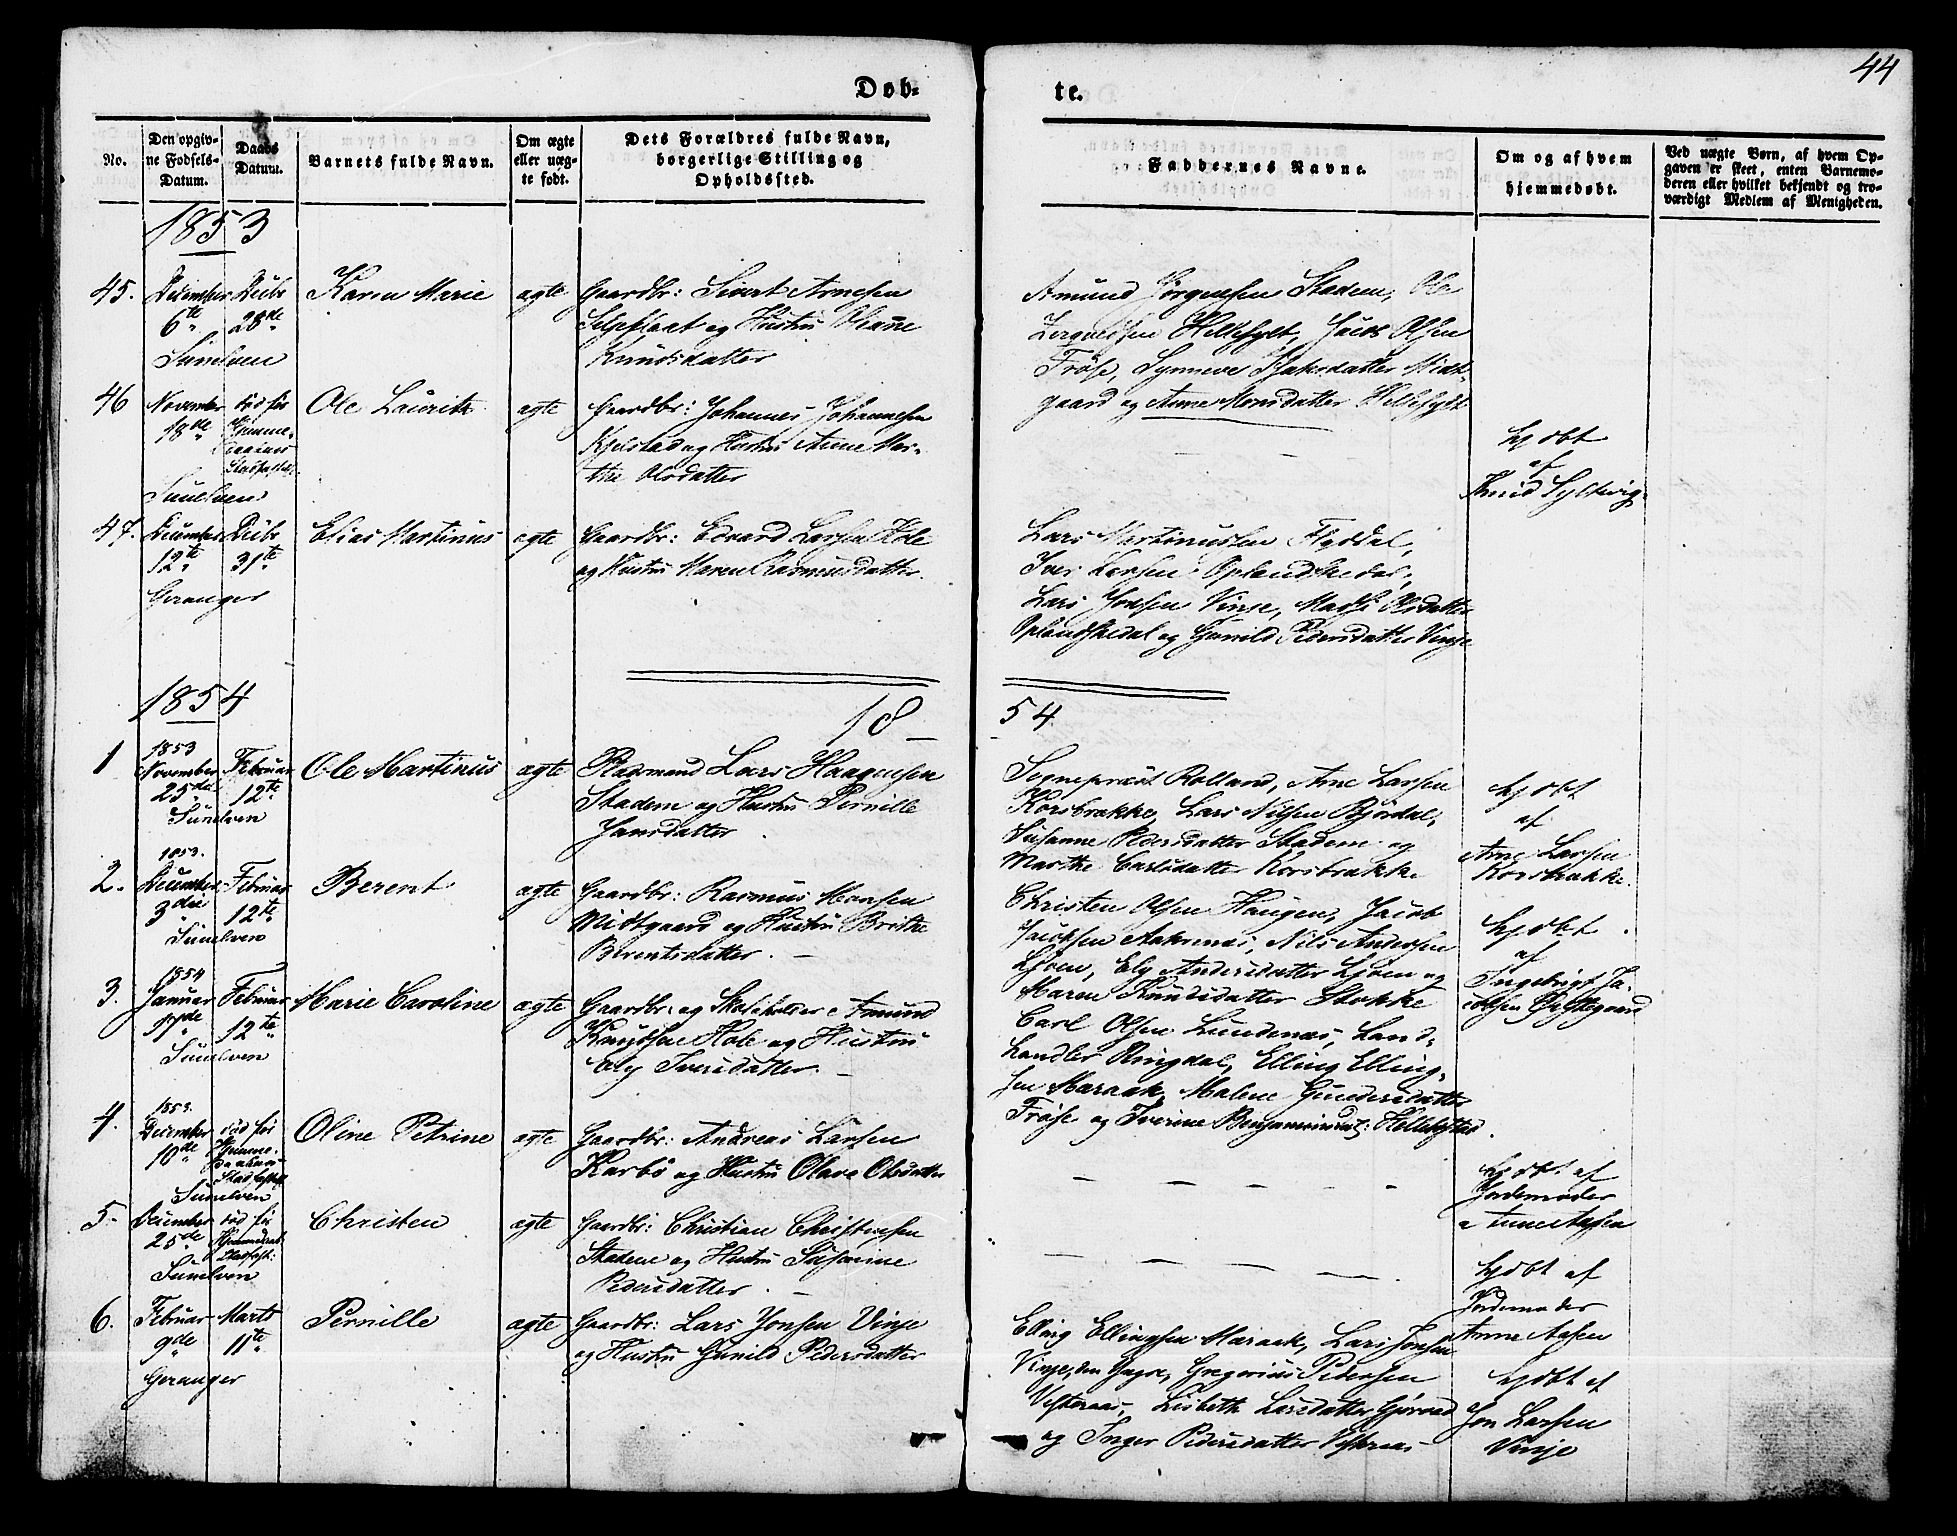 44
Døb-
te.
No.
Den opgiv-
ne Fødsels-
Datum.
Daabs
Datum.
Barnets fulde Navn.
Om ægte
eller uæg-
te født.
Dets Forældres fulde Navn,
borgerlige Stilling og
Opholdssted.
Faddernes Navne.
Om og af hvem
hjemmedøbt.
Ved uægte Børn, af hvem Op-
gaven er skeet, enten Barnemo-
deren eller hvilket bekjendt og tro-
værdigt Medlem af Menigheden.
1853
45.
December
6te
Sunelven
Decbr
28de
Karen Marie
ægte
Gaardbr: Sivert Arnesen
og Hustru Oleane
Knudsdatter
Amund Jørgensen Stadem, Ole
Hellesylt, Jacob Olsen
Frøse, Synneve Midt-
gaard og Anne Monsdatter Hellesylt
46
November
18de
Sunelven
død før
Hjemme-
daabens
Stadfæstelse
Ole Lauritz
ægte
Gaardbr: Johannes Johannesen
Kjelstad og Hustru Anne Mar-
the Olsdatter
hjdøbt
af
Knud Syltevig
47.
December
12te
Geranger
Decbr
31te
Elias Martinus
ægte
Gaardbr: Edvard Larsen Hole
og Hustru Maren Rasmusdatter.
Lars Martinussen Flyddal,
Iver Larsen Oplandskedal,
Lars Jonsen Vinje, Olsdatter
Oplandskedal og Gunild Pedersdatter Vinje
1854
18
54.
1
1853
November
25de
Sunelven
Februar
12te
Ole Martinus
ægte
Pladsmand Lars Haagensen
Stadem og Hustru Pernille
Jansdatter.
Sognepræst Rolland, Arne Larsen
Korsbrække, Lars Nilsen Bjørdal,
Susanne Pedersdatter Stadem og
Marthe Carlsdatter Korsbrække
hjdøbt
af
Arne Larsen
Korsbrække.
2.
1853.
December
3die
Sunelven
Februar
12te
Berent
ægte
Gaardbr: Rasmus Monsen
Midtgaard og Hustru Brithe
Berentsdatter.
Christen Olsen Haugen, Jacob
Jacobsen Aakernæs, Nils Andersen
Ljøen, Ely Andersdatter Ljøen og
Maren Knudsdatter Stokke
hjdøbt
af
Ingebrigt Ja-
cobsen
3.
1854
Januar
17de
Sunelven
Februar
12te
Marie Caroline
ægte
Gaardbr: og Skoleholder Amund
Knudsen Hole og Hustru
Ely Iversdatter.
Carl Olsen Lundenæs, Land-
handler Ringdal, Elling Elling-
sen Maraak, Malene Gundersdatter
Frøse og Iverine Benjaminsdt: Hellesylt.
4.
1853.
December
10de
Sunelven
død før
Hjemme-
daabens
Stadfæstelse
Oline Petrine
ægte
Gaardbr: Andreas Larsen
Karbø og Hustru Olave Olsdatter
hjdøbt af
Jordemoder
Anne Aasen
5.
December
25de
Sunelven
død før
Stadfæst:
Christen
ægte
Gaardbr: Christian Christensen
Stadem og Hustru Susanne
Pedersdatter.
hjdøbt af
Jordemoder
Anne Aasen
6.
Februar
9de
Geranger
Marts
11te
Pernille
ægte
Gaardbr: Lars Jonsen Vinje
og Hustru Gunild Pedersdatter
Elling Ellingsen Maraak, Lars Jonsen
Vinje, den Yngre, Gregorius Pedersen
Vesteraas, Lisbeth Larsdatter Gjørvad
og Inger Pedersdatter Vesteraas
hjdøbt af
Jon Larsen
Vinje